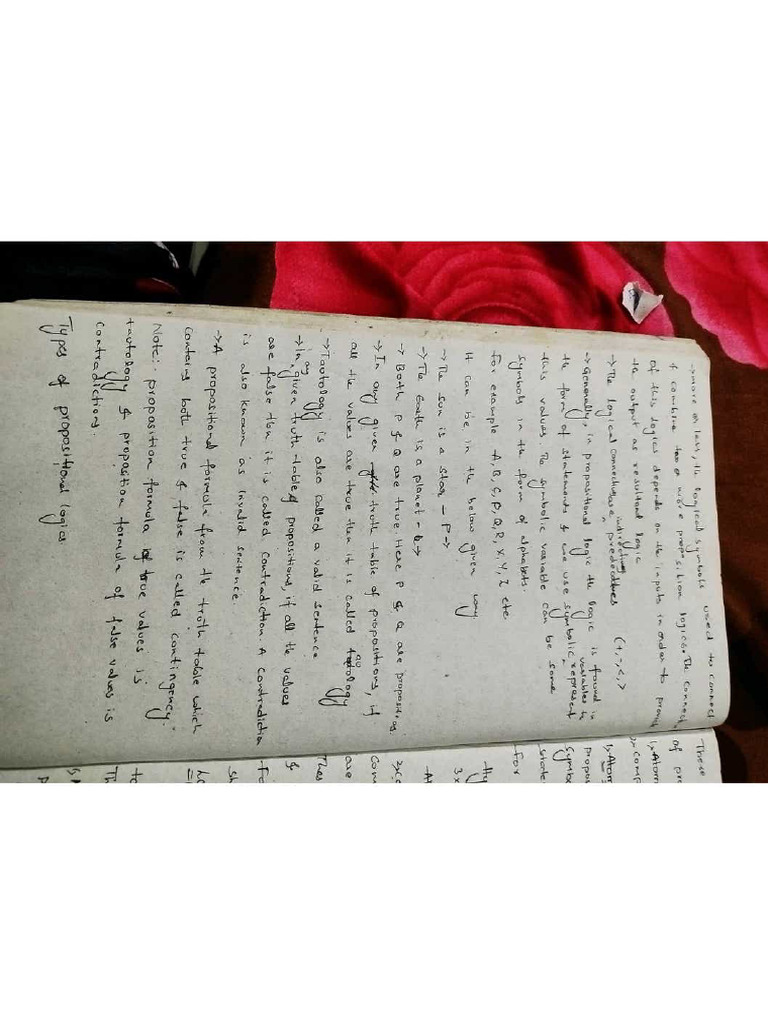 → more or less, the logical symbols used to connect
& combine two or more proposition logics. The connect
of this logics depends on the inputs in order to provid
the output as resultand logic
→ The logical connectives are predecittes (+, -, <, >
individing
→ Generally, in propositional logic the logic is found in
the form of statements & we use symbolic represent
variables to
this values. The symbolic variable can be some
symbols in the form of alphabets.
For example A, B, C, P, Q, R, X, Y, Z etc
It can be in the below given way
→ The sun is a star - P →
→ The Earth is a planet - Q →
→ Both P & Q are true. Here P & Q are propositions
→ In any given truth table of propositions, if
all the values are true then it is called tautology
→ Tautology is also called a valid sentence
→ In any given truth-table of propositions, if all the values
are false then it is called contradiction. A contradiction
is also known as invalid sentence.
→ A propositional formula from the truth table which
contains both true & false is called contingency.
Note: proposition formula of true values is
tautology & proposition formula of false values is
contradictions.
Types of propositional logics:
These
of pro
1) Atom
2) comp
1) Atom
propos
symbo
state
for
Hy
3x
At
2) Co
com
are
Thes
&
fo
st
to
Th